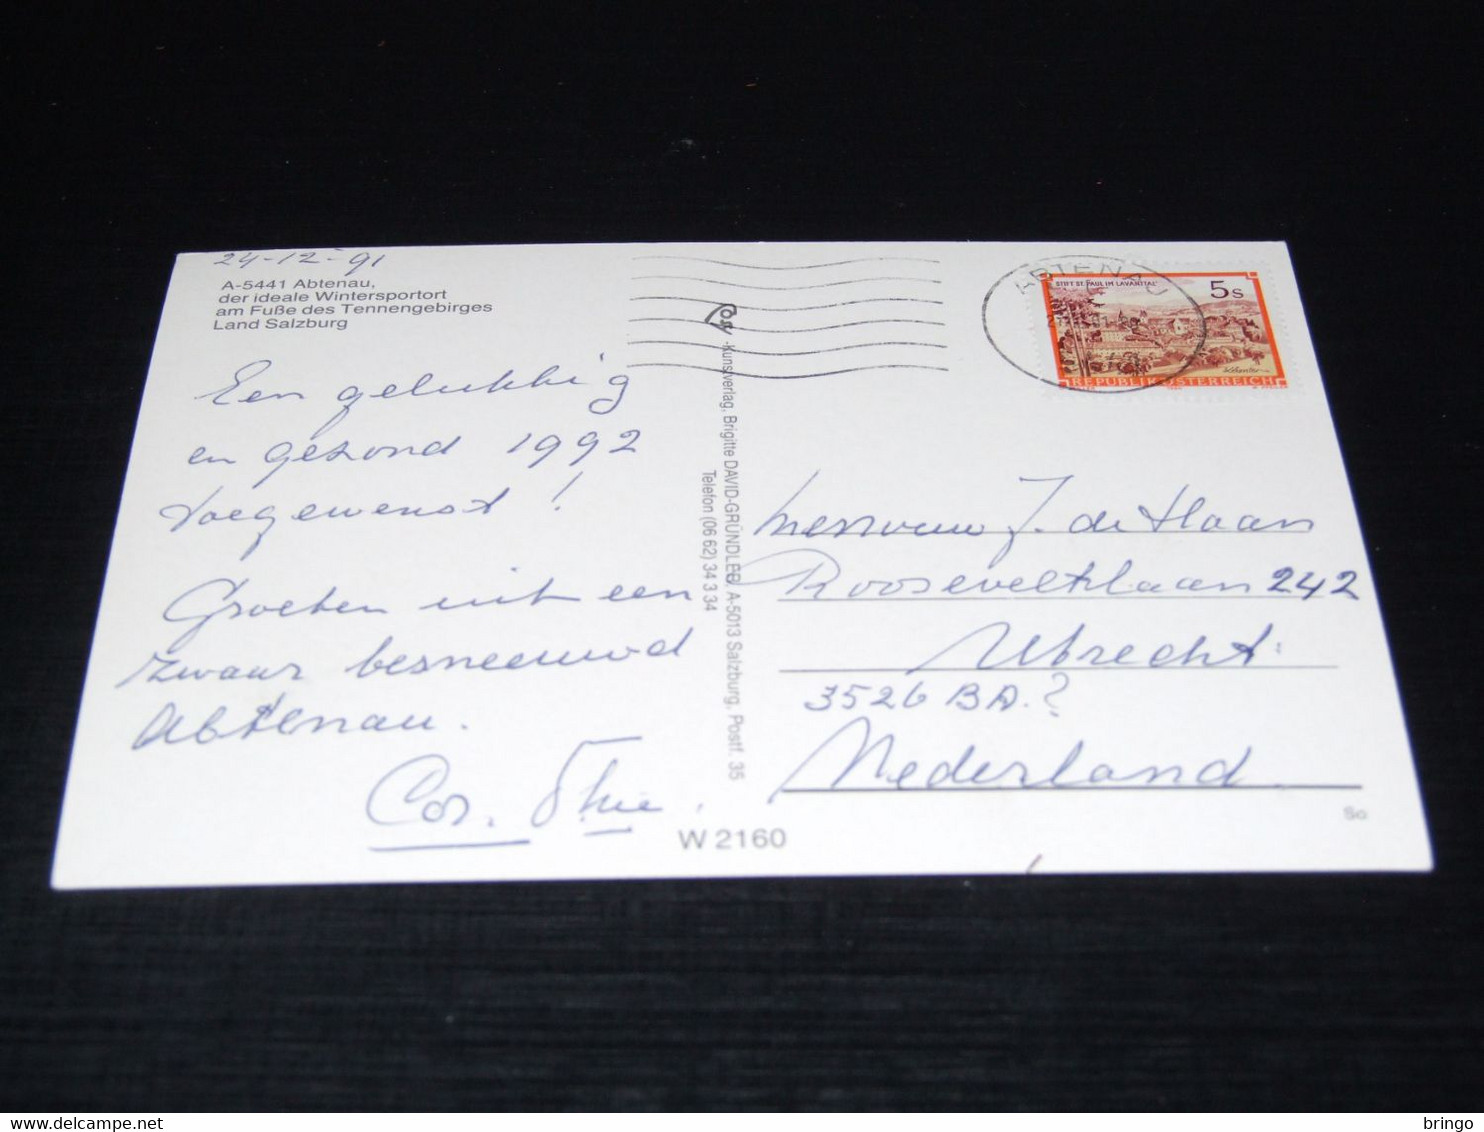 24-12-'91
A-5441 Abtenau,
der ideale Wintersportort
am Fuße des Tennengebirges
Land Salzburg
Een gelukkig
en gezond 1992
toegewenst!
Groeten uit een
zwaar besneeuwd
Abtenau.
Cor.
-Kunstverlag, Brigitte DAVID-GRÜNDLER, A-5013 Salzburg, Postf. 35
Telefon (06 62) 34 3 34
W 2160
ABTENAU
STIFT ST. PAUL IM LAVANTTAL
5s
REPUBLIK ÖSTERREICH
Mevrouw J. de Haan
Rooseveltlaan 242
Utrecht
3526 BA.?
Nederland
So
delcampe.net
bringo